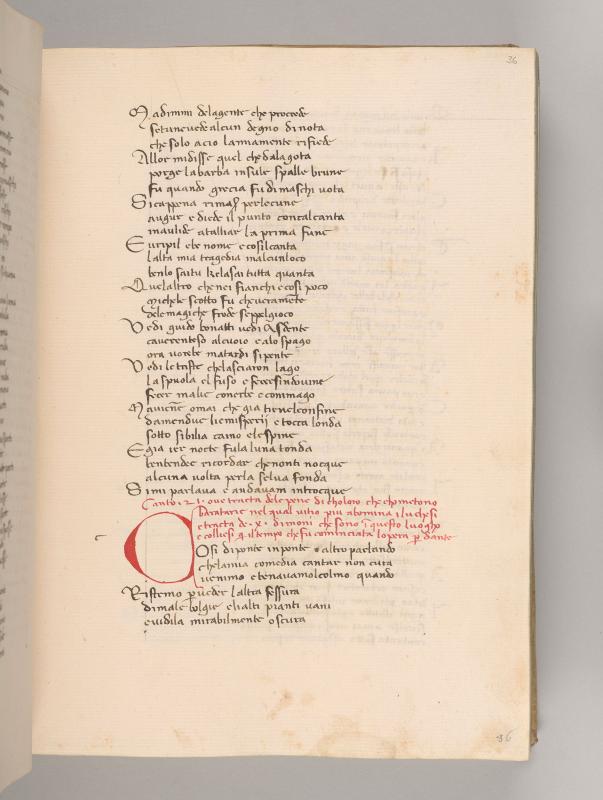 36
Ma dimmi delagente che procede
setunevede alcun degno dinota
che solo acio lamiamente rifiede
Allor midisse quel chedalagota
porge labarba insule spalle brune
fu quando grecia fu dimaschi vota
Sicappena rimaser perlecune
augure e diede il punto concalcanta
inaulide atalliar la prima fune
Euripil ebe nome ecosilcanta
lalta mia tragedia inalcunloco
benlo saitu kelasai tutta quanta
Quelaltro chenei fianchi ecosi poco
michele scotto fu cheueramete
dele magiche frode seppelgioco
Vedi guido bonatti vedi Asdente
cauerenteso alcuoio ealo spago
ora uorebe matardi sipente
Vedi letriste chelasciaron lago
la spuola el fuso e fecersindouine
fecer malie conerbe econimago
Mauiene omai che gia tieneleonfine
damendue liemisperij e tocca londa
sotto sibilia caino elespine
Egia ier nocte fula luna tonda
bentendee ricordar chenonti nocque
alcuna volta perla selua fonda
Simi parlava e andavam introcque
Canto .21. ove tracta dele pene di choloro che chometono
baratarie nel qual vitio piu abomina i luchesi
e tracta de .x. dimoni che sono i questo luogho
e collusi q il tempo che fu cominciata lopera p dante
Cosi diponte inponte altro parlando
chelamia comedia cantar non cura
uenimo etenavamolcolmo quando
Ristemo p ueder laltra fessura
dimale bolgie elialti pianti vani
euidila mirabilmente oscura
36